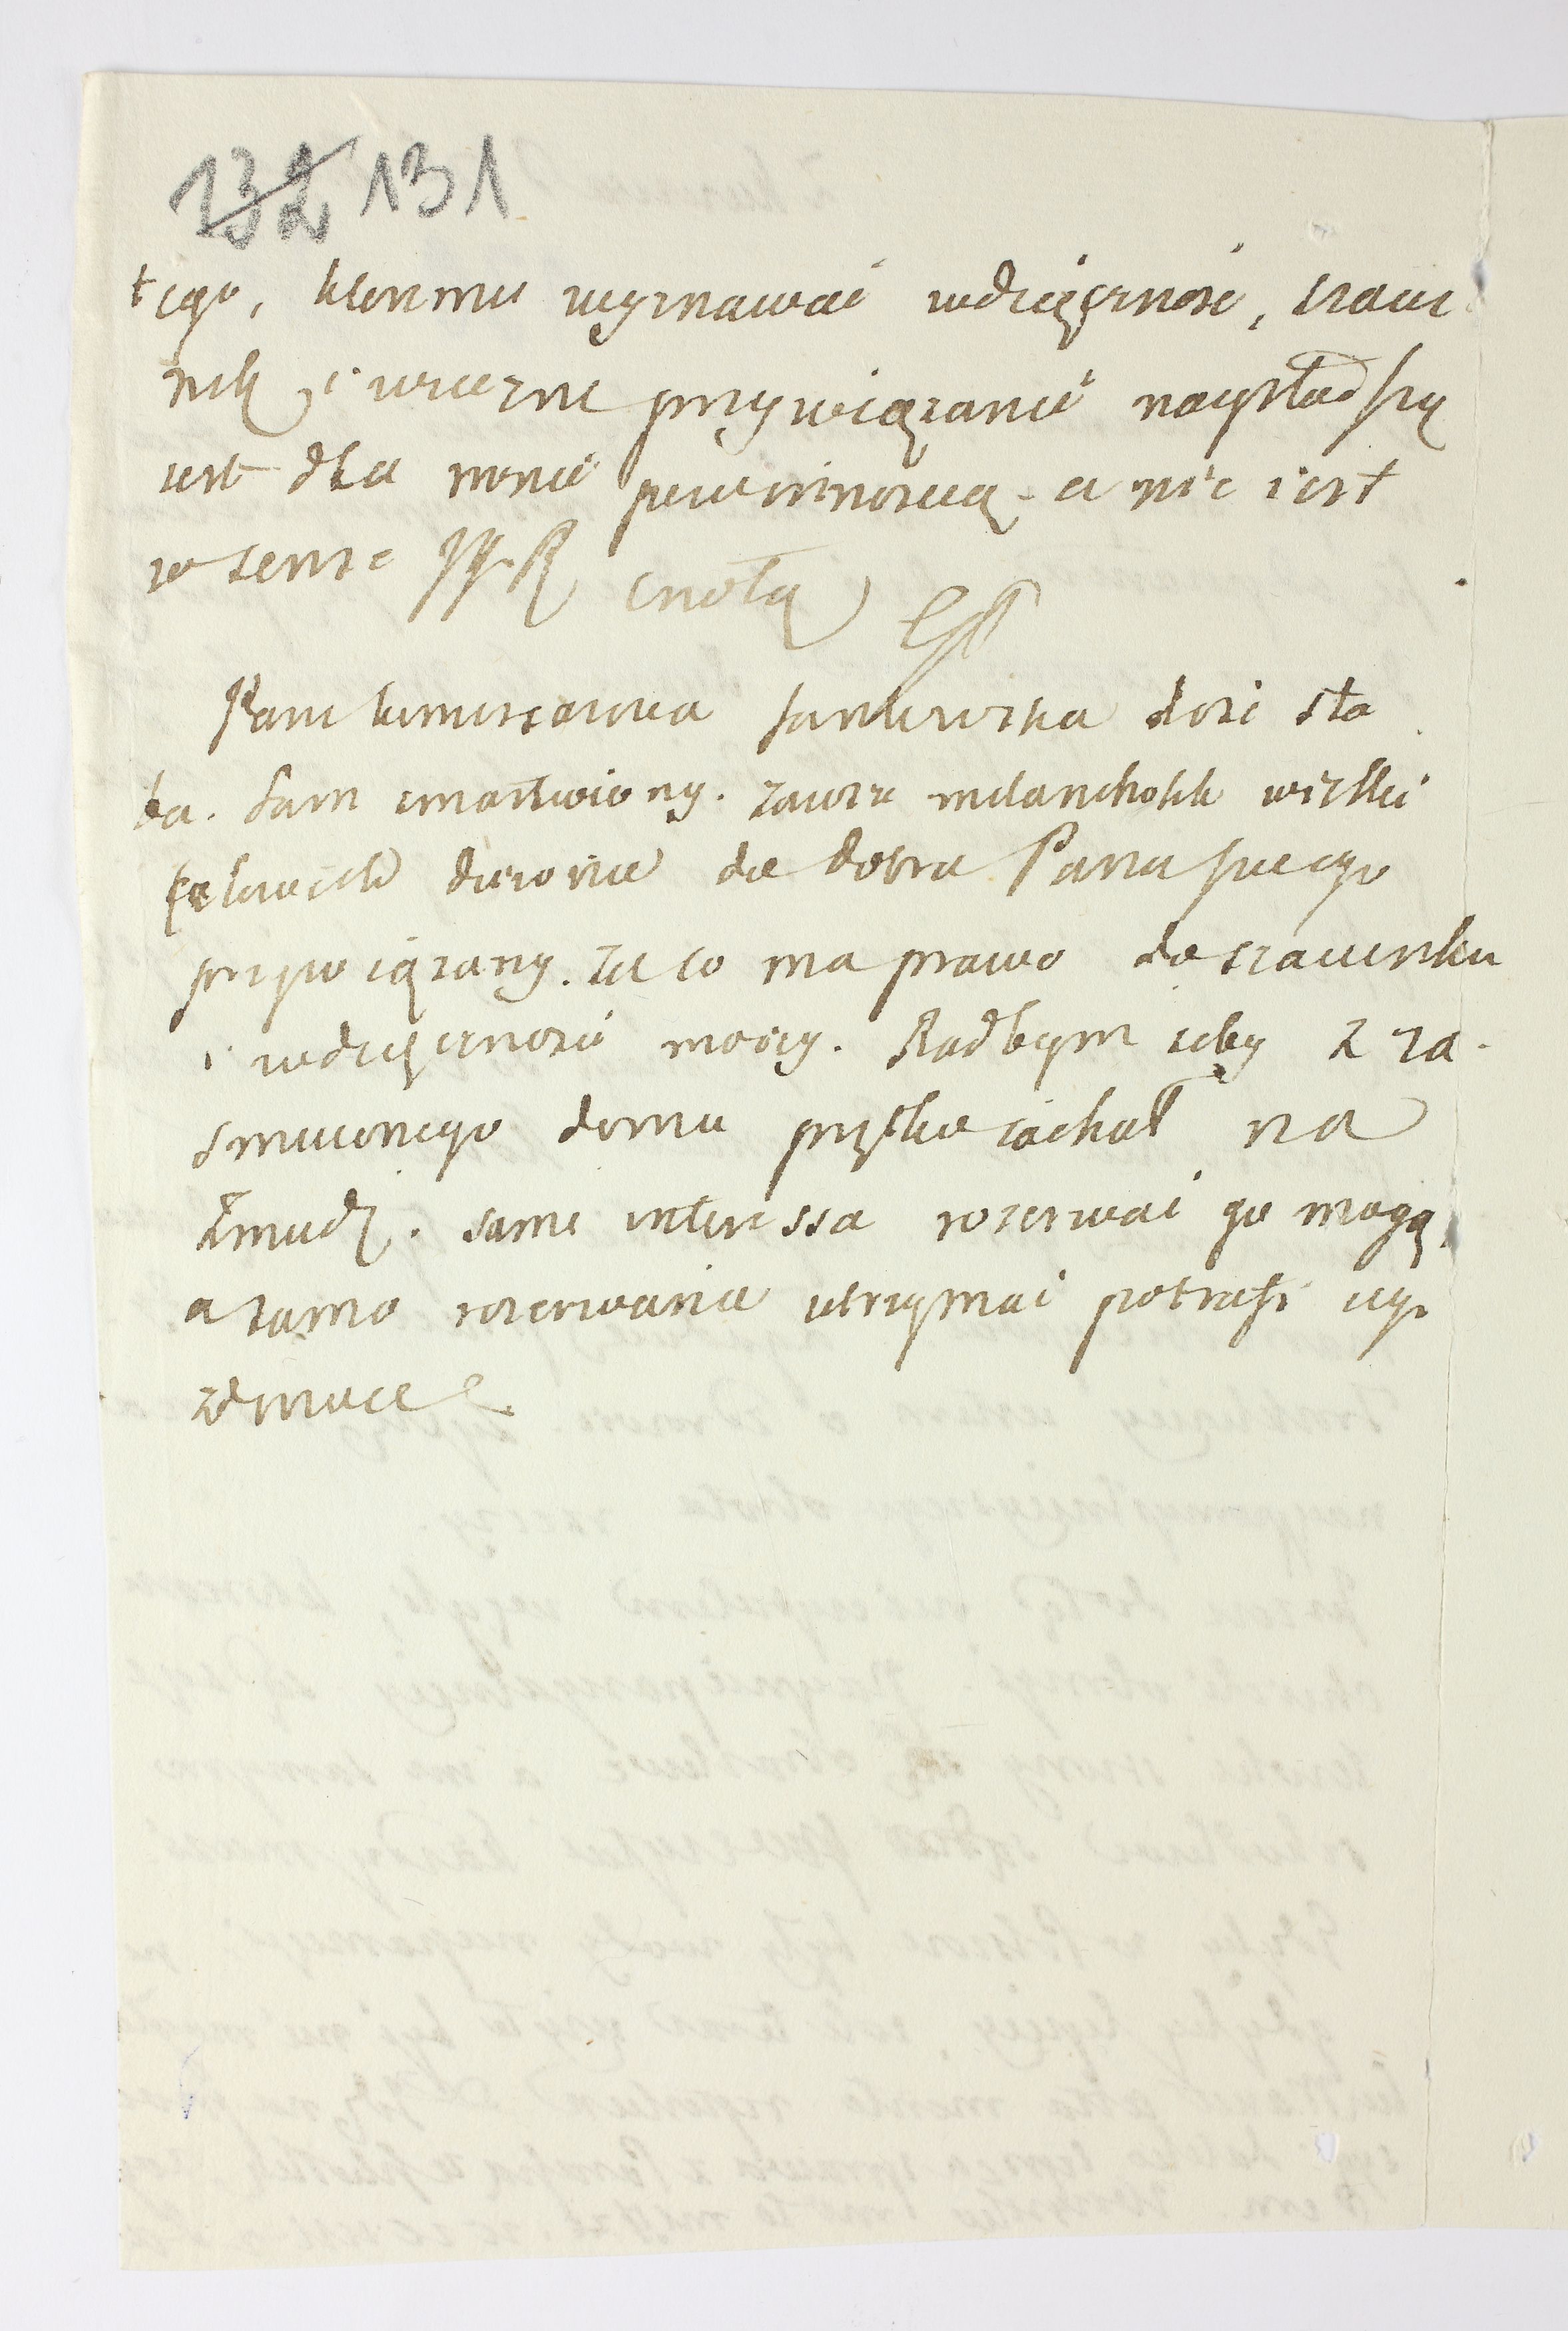 132 131
tego, ktoremu wyznawać wdzięcznosć, szacu
nek, i wieczne przywiązanie naysłodszą
iest dla mnie powinnoscią – a nie iest
w sensie cnotą
Pani komisarzowa dosć sła
ba. Sam zmartwiony. zawsze melancholik wielki
człowiek dziwnie do dobra Pana swego
przywiązany. za co ma prawo do szacunku
i wdzięcznosci moiey. Radbym żeby z za-
smuconego domu prętko iachał na
Żmudz. same interessa rozerwać go mogą,
a samo rozerwanie utrzymać potrafi iego
zdrowie.